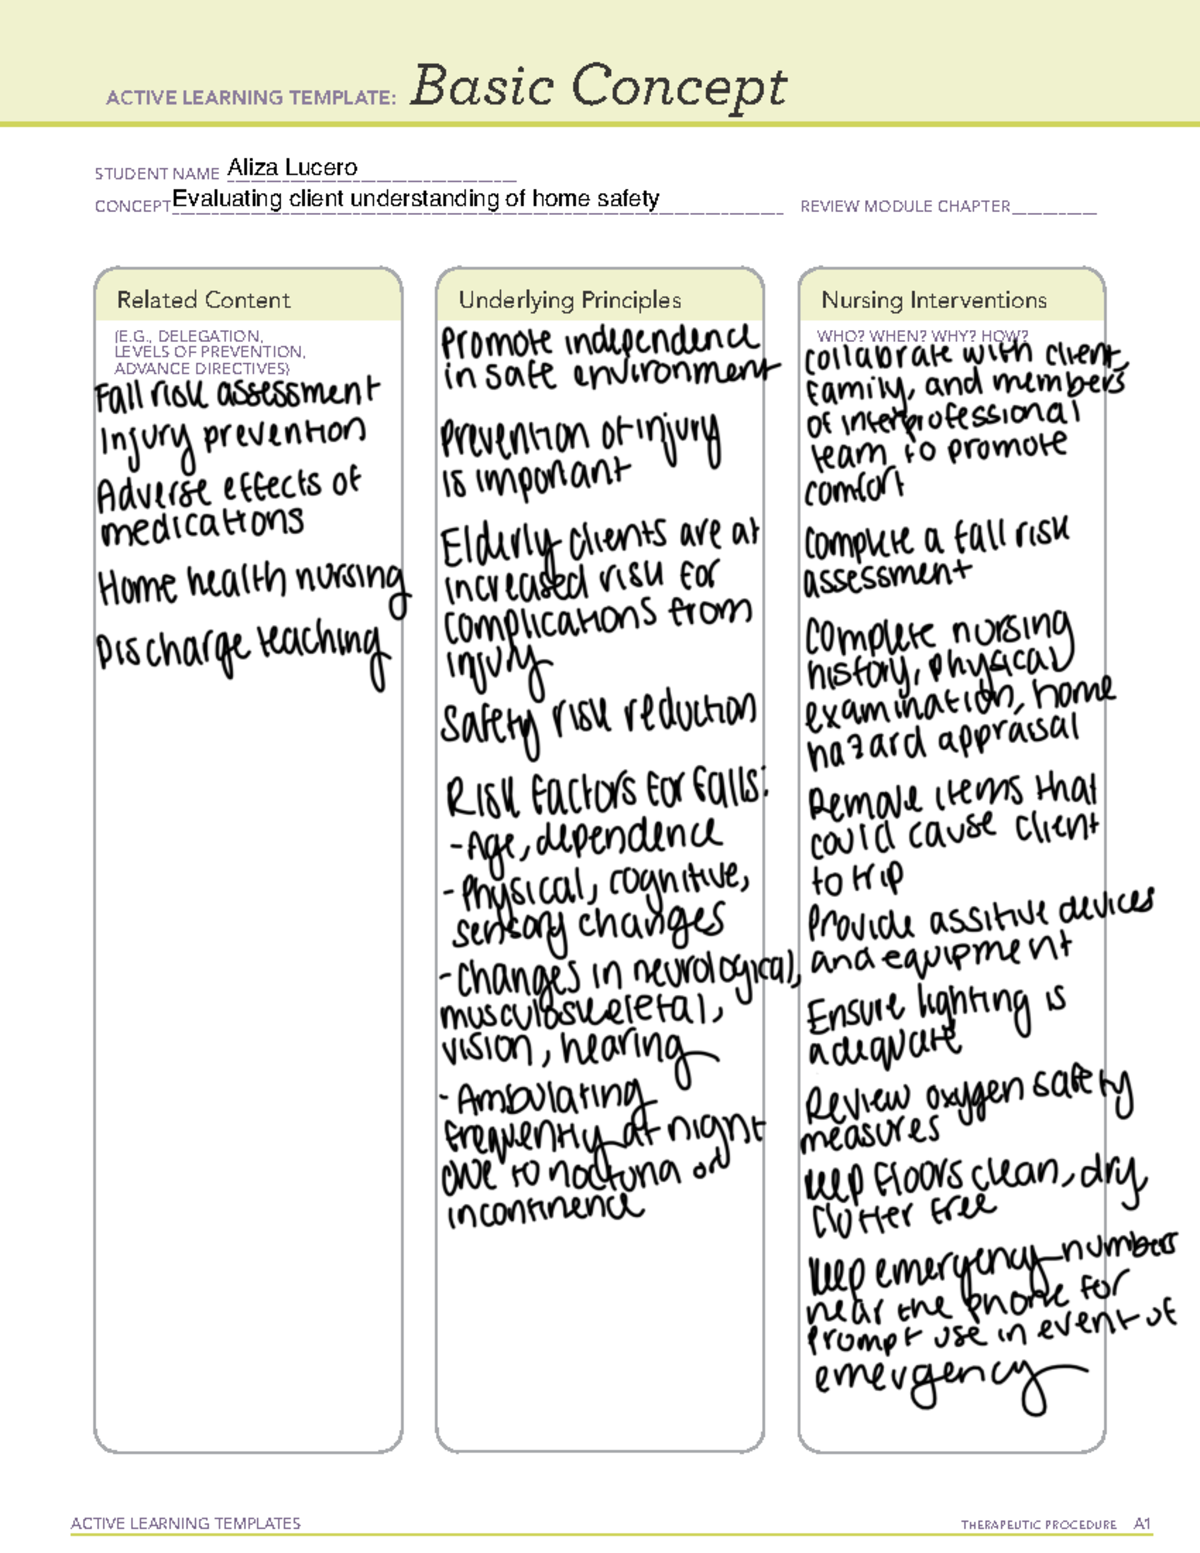 ACTIVE LEARNING TEMPLATE: Basic Concept
STUDENT NAME Aliza Lucero
CONCEPT Evaluating client understanding of home safety REVIEW MODULE CHAPTER
Related Content
(E.G., DELEGATION,
LEVELS OF PREVENTION,
ADVANCE DIRECTIVES)
Fall risk assessment
Injury prevention
Adverse effects of
medications
Home health nursing
Discharge teaching
Underlying Principles
Promote independence
in safe environment
Prevention of injury
is important
Elderly clients are at
increased risk for
complications from
injury
Safety risk reduction
Risk factors for falls:
- Age, dependence
- Physical, cognitive,
sensory changes
- Changes in neurological,
musculoskeletal,
vision, hearing
- Ambulating
frequently at night
due to nocturia or
incontinence
Nursing Interventions
WHO? WHEN? WHY? HOW?
collabrate with client,
family, and members
of interprofessional
team to promote
comfort
Complete a fall risk
assessment
Complete nursing
history, physical
examination, home
hazard appraisal
Remove items that
could cause client
to trip
Provide assitive devices
and equipment
Ensure lighting is
adequate
Review oxygen safety
measures
Keep floors clean, dry,
clutter free
Keep emergency numbers
near the phone for
prompt use in event of
emergency
ACTIVE LEARNING TEMPLATES
THERAPEUTIC PROCEDURE A1